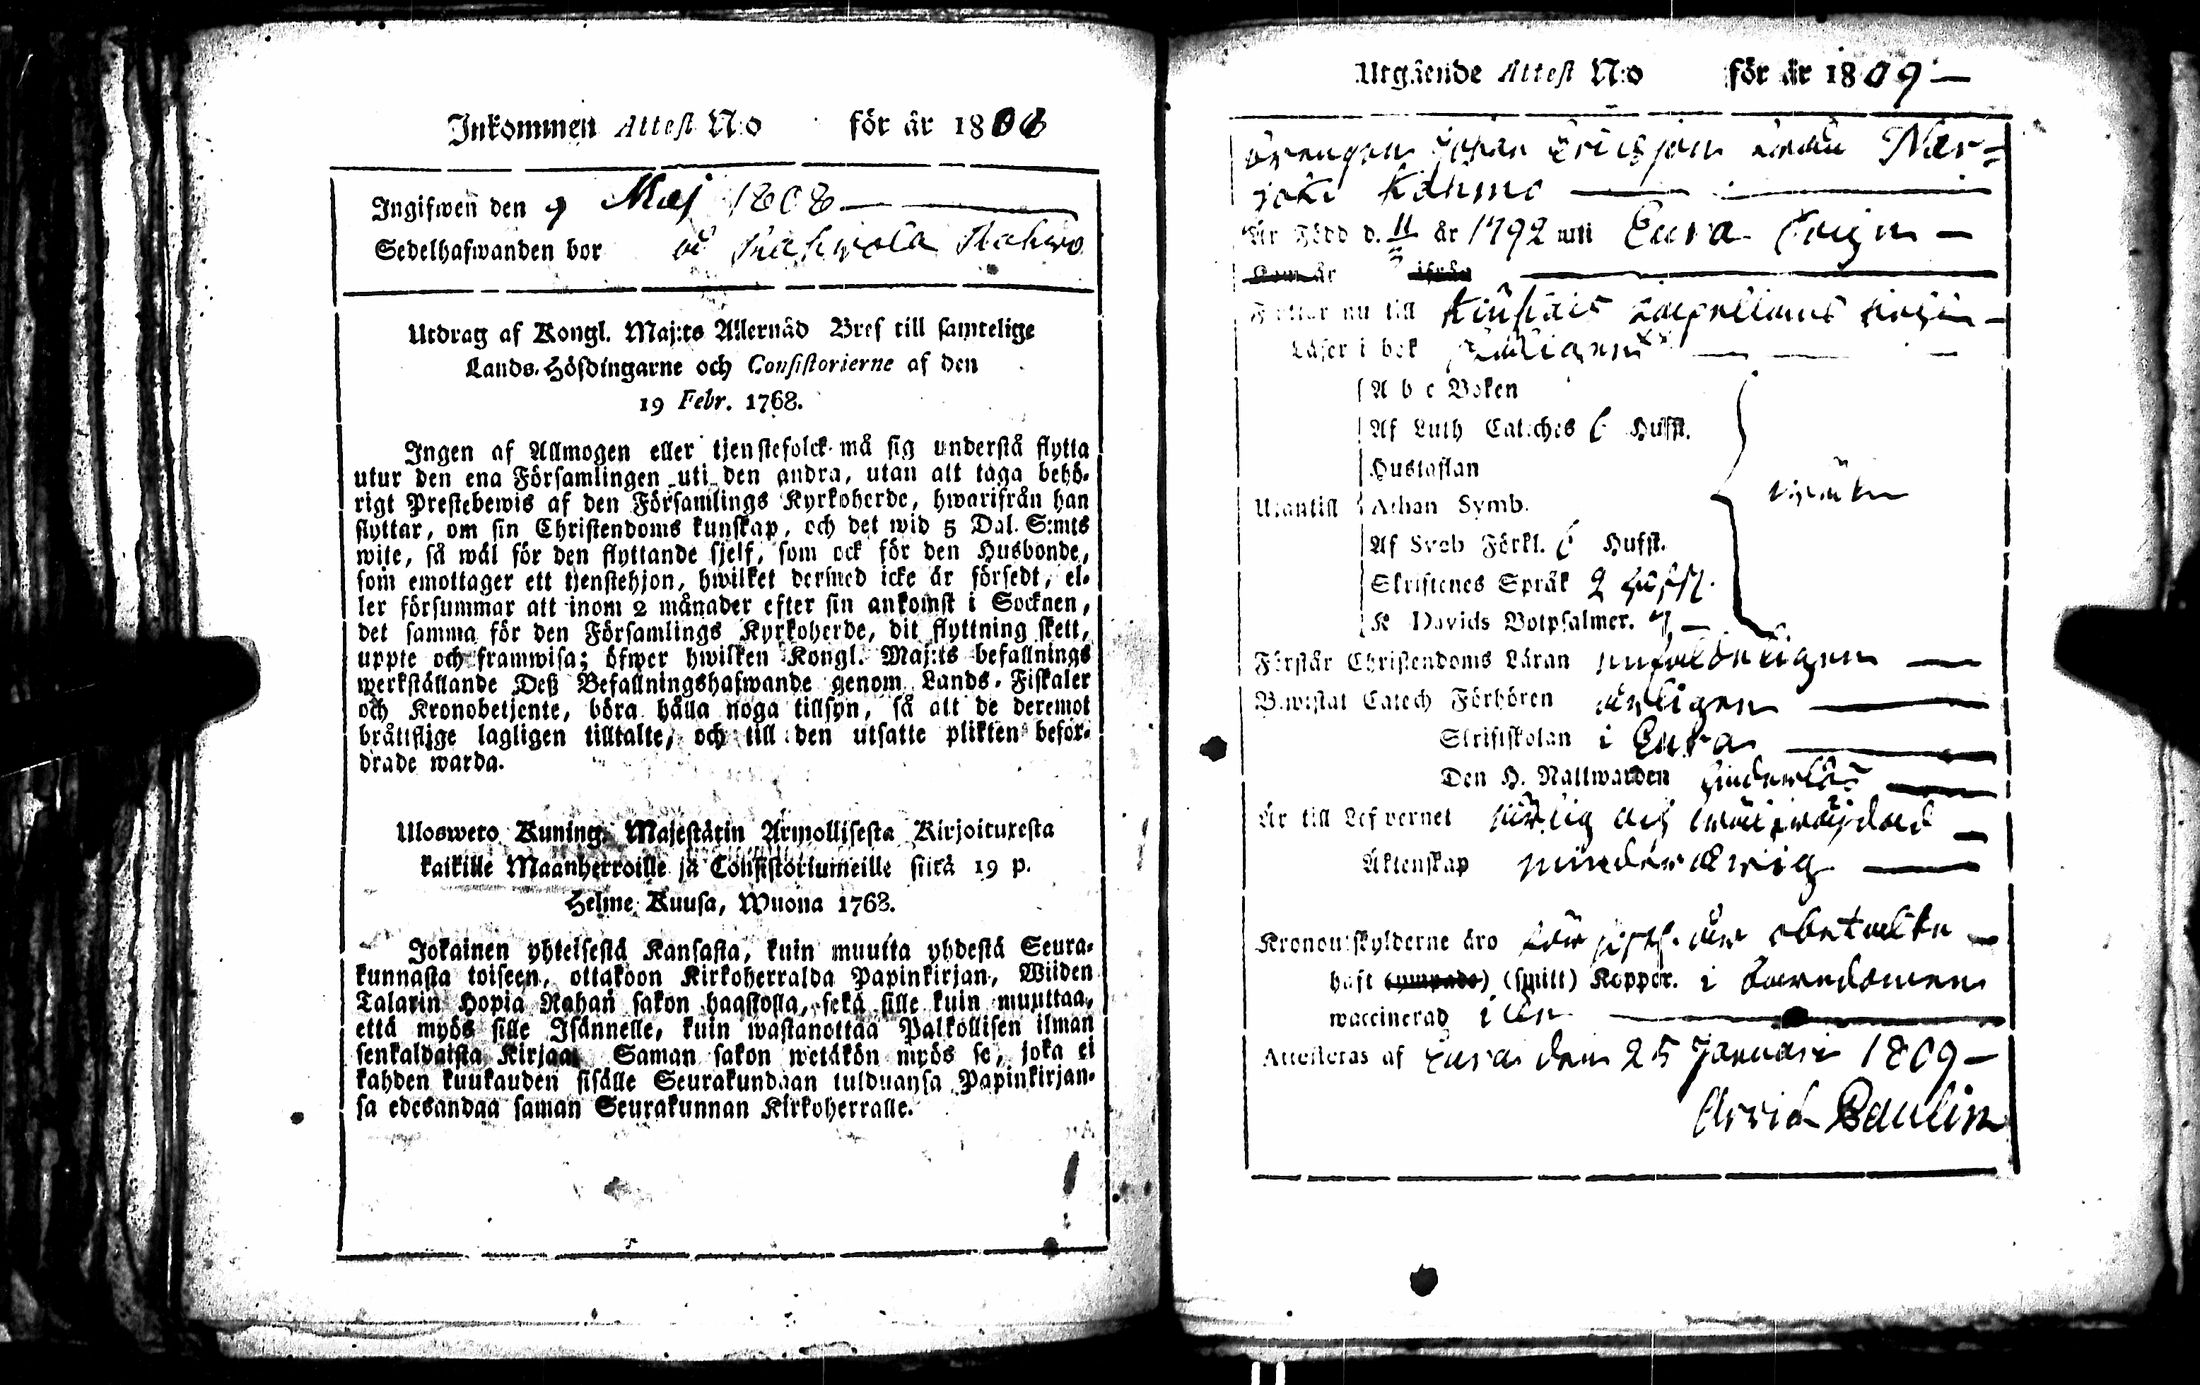 Inkommen Attest N:o för år 1808
Ingifwen den 9 Maj 1808
Sedelhafwanden bor
Utdrag af Kongl. Maj:ts Allernåd Bref till samtelige
Lands-Höfdingarne och Consistorierne af den
19 Febr. 1768.
Ingen af Allmogen eller tjenstefolck må sig understå flytta
utur den ena Församlingen uti den andra, utan att taga behö-
rigt Prestebewis af den Församlings Kyrkoherde, hwarifrån han
flyttar, om sin Christendoms kunskap, och det wid 5 Dal. S:mts
wite, så wäl för den flyttande sjelf, som ock för den Husbonde,
som emottager ett tjenstehjon, hwilket dermed icke är försedt, el-
ler försummar att inom 2 månader efter sin ankomst i Socknen,
det samma för den Församlings Kyrkoherde, dit flyttning skett,
uppte och framwisa; öfwer hwilken Kongl. Maj:ts befallnings
werkställande Deß Befallningshafwande genom Lands-Fiskaler
och Kronobetjente, böra hålla noga tillsyn, så att de deremot
bråttslige lagligen tilltalte, och till den utsatte plikten beför-
drade warda.
Uloswero Kuning. Majestätin Armollisesta Kirjoituxesta
kaikille Maanherroille ja Consistoriumeille siitä 19 p.
Helme Kuusa, Wuona 1768.
Jokainen yhteisestä Kansasta, kuin muutta yhdestä Seura-
kunnasta toiseen, ottakoon Kirkoherralda Papinkirjan, Wiiden
Talarin Hopia Rahan sakon haastolla, sekä sille kuin muuttaa,
että myös sille Isännelle, kuin wastanottaa Palkollisen ilman
senkaldaista Kirjaa. Saman sakon wetäkön myös se, joka ei
kahden kuukauden sisälle Seurakundaan tulduansa Papinkirjan-
sa edesandaa saman Seurakunnan Kirkoherralle.
Utgående Attest N:o för år 1809
Drengen Johan Ericsson ifrån
Är Född d. 11/3 år 1792 uti Eura Sokn
Kom år ifrån
Flyttar nu till Capellans
Läser i bok
A b c Boken
Af Luth Cateches 6 Hufst.
Hustaflan
Utantill Athan Symb.
Af Sveb Förkl. 6 Hufst.
Skriftenes Språk 2 Hufst.
K Davids Botpsalmer. 7
Förstår Christendoms Läran enfaldeligen
Bewistat Catech Förhören årligen
Skriftskolan i Eura
Den H. Nattwarden hinderlös
Är till Lefvernet och
Äktenskap minderårig
Kronoutskylderne äro för sist. år obetalte
haft (ympade) (smitt) Koppor. i barndomen
waccinerad icke
Attesteras af Eura den 25 Januari 1809
Arvid Paulin